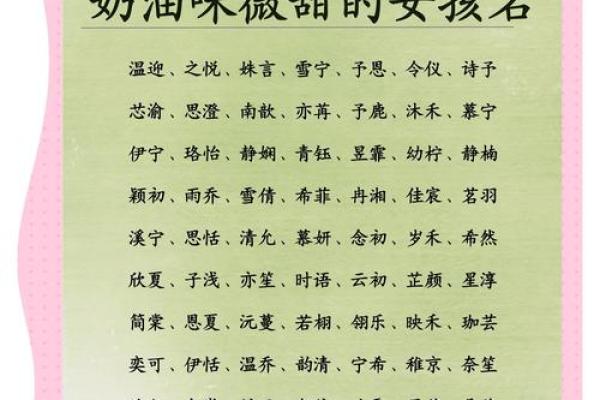 奶油味微甜的女孩名
温迎、之悦、姝言、雪宁、予恩、令仪、诗予
芯渝、思澄、南歆、亦苒、予鹿、沐禾、慕宁
伊宁、珞怡、静娴、青钰、昱霏、幼柠、静楠
颖初、雨乔、雪倩、希菲、冉湘、佳宸、茗羽
溪宁、思恬、清允、慕妍、念初、岁禾、希然
欣夏、子浅、亦笙、时语、云初、芷颜、星淳
简棠、恩夏、沅蔓、若栩、翎乐、映禾、珈芸
奕可、伊恬、温乔、韵清、宁希、稚京、奈笙